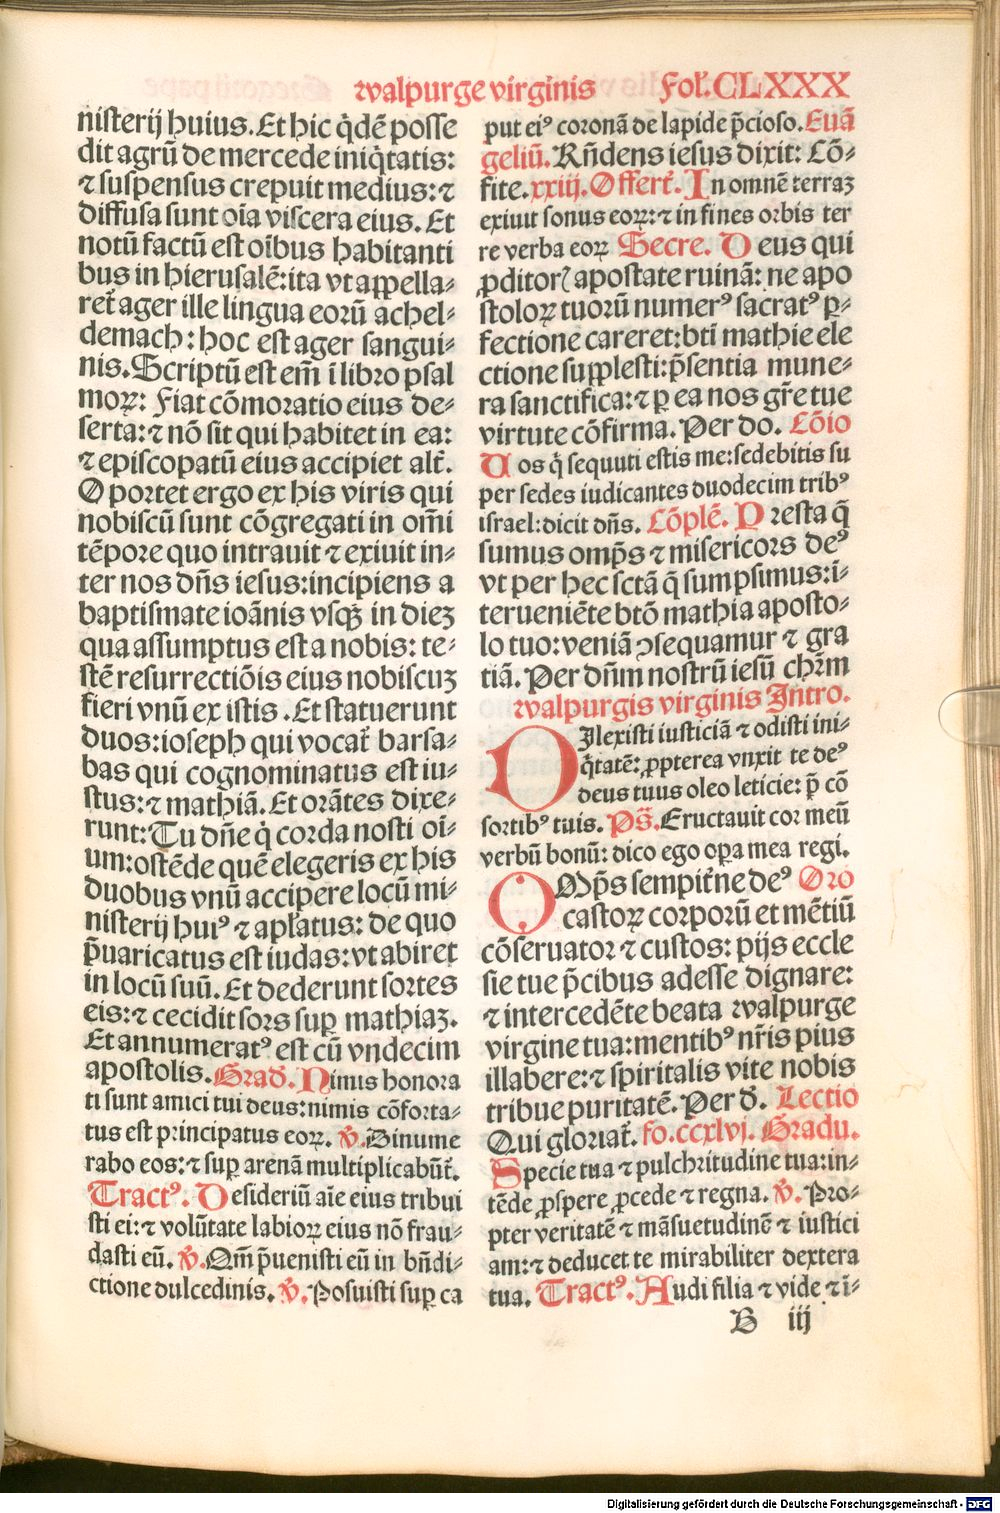 walpurge virginis Fol. CLXXX
nisterij huius. Et hic q̇dē posse
dit agrū de mercede iniq̇tatis:
⁊ suspensus crepuit medius: ⁊
diffusa sunt oīa viscera eius. Et
notū factū est oībus habitanti
bus in hierusalē: ita vt appella⸗
ret̄ ager ille lingua eorū achel⸗
demach: hoc est ager sangui⸗
nis. Scriptū est em̄ ī libro psal
moꝝ: Fiat cōmoratio eius de⸗
serta: ⁊ nō sit qui habitet in ea:
⁊ episcopatū eius accipiet alt̄.
Oportet ergo ex his viris qui
nobiscū sunt cōgregati in om̄i
tēpore quo intrauit ⁊ exiuit in⸗
ter nos dn̄s iesus: incipiens a
baptismate ioānis vsqꝫ in dieꝫ
qua assumptus est a nobis: te⸗
stē resurrectiōis eius nobiscuꝫ
fieri vnū ex istis. Et statuerunt
duos: ioseph qui vocat̄ barsa⸗
bas qui cognominatus est iu⸗
stus: ⁊ mathiā. Et orātes dixe⸗
runt: Tu dn̄e q̇ corda nosti oī⸗
um: ostēde quē elegeris ex his
duobus vnū accipere locū mi⸗
nisterij huiꝰ ⁊ apl̄atus: de quo
p̄uaricatus est iudas: vt abiret
in locū suū. Et dederunt sortes
eis: ⁊ cecidit sors suꝑ mathiaꝫ.
Et annumeratꝰ est cū vndecim
apostolis. Grad̄. Nimis honora
ti sunt amici tui deus: nimis cōforta⸗
tus est principatus eoꝝ. v̄. Dinume
rabo eos: ⁊ suꝑ arenā multiplicabūt̄.
Tractꝰ. Desideriū aīe eius tribui
sti ei: ⁊ volūtate labioꝝ eius nō frau⸗
dasti eū. v̄. Qm̄ p̄uenisti eū in bn̄di⸗
ctione dulcedinis. v̄. Posuisti suꝑ ca
put eiꝰ coronā de lapide p̄cioso. Euā
geliū. Rn̄dens iesus dixit: Cō⸗
fite. xxiij. Offert̄. In omnē terraꝫ
exiuit sonus eoꝝ: ⁊ in fines orbis ter
re verba eoꝝ Secre. Deus qui
ꝓditorꝭ apostate ruinā: ne apo
stoloꝝ tuorū numerꝰ sacratꝰ ꝑ⸗
fectione careret: bt̄i mathie ele
ctione supplesti: p̄sentia mune⸗
ra sanctifica: ⁊ ꝑ ea nos gr̄e tue
virtute cōfirma. Per do. Cōio
Vos q̇ sequuti estis me: sedebitis su
per sedes iudicantes duodecim tribꝰ
israel: dicit dn̄s. Cōplē. Presta q̄
sumus omp̄s ⁊ misericors deꝰ
vt per hec sctā q̄ sumpsimus: ī⸗
terueniēte btō mathia aposto⸗
lo tuo: veniā ꝯsequamur ⁊ gra
tiā. Per dn̄m nostrū iesū chr̄m
walpurgis virginis Intro.
Dilexisti iusticiā ⁊ odisti ini⸗
q̇tatē: ꝓpterea vnxit te deꝰ
deus tuus oleo leticie: p̄ cō
sortibꝰ tuis. Ps̄. Eructauit cor meū
verbū bonū: dico ego oꝑa mea regi.
Omp̄s sempit̄ne deꝰ Oro
castoꝝ corporū et mētiū
cōseruator ⁊ custos: pijs eccle
sie tue p̄cibus adesse dignare:
⁊ intercedēte beata walpurge
virgine tua: mentibꝰ nr̄is pius
illabere: ⁊ spiritalis vite nobis
tribue puritatē. Per d̄. Lectio
Qui gloriat̄. fo. ccxlvj. Gradu.
Specie tua ⁊ pulchritudine tua: in⸗
tēde ꝓspere ꝓcede ⁊ regna. v̄. Pro⸗
pter veritatē ⁊ māsuetudinē ⁊ iustici
am: ⁊ deducet te mirabiliter dextera
tua. Tractꝰ. Audi filia ⁊ vide ⁊ ī⸗
B iij
Digitalisierung gefördert durch die Deutsche Forschungsgemeinschaft - DFG